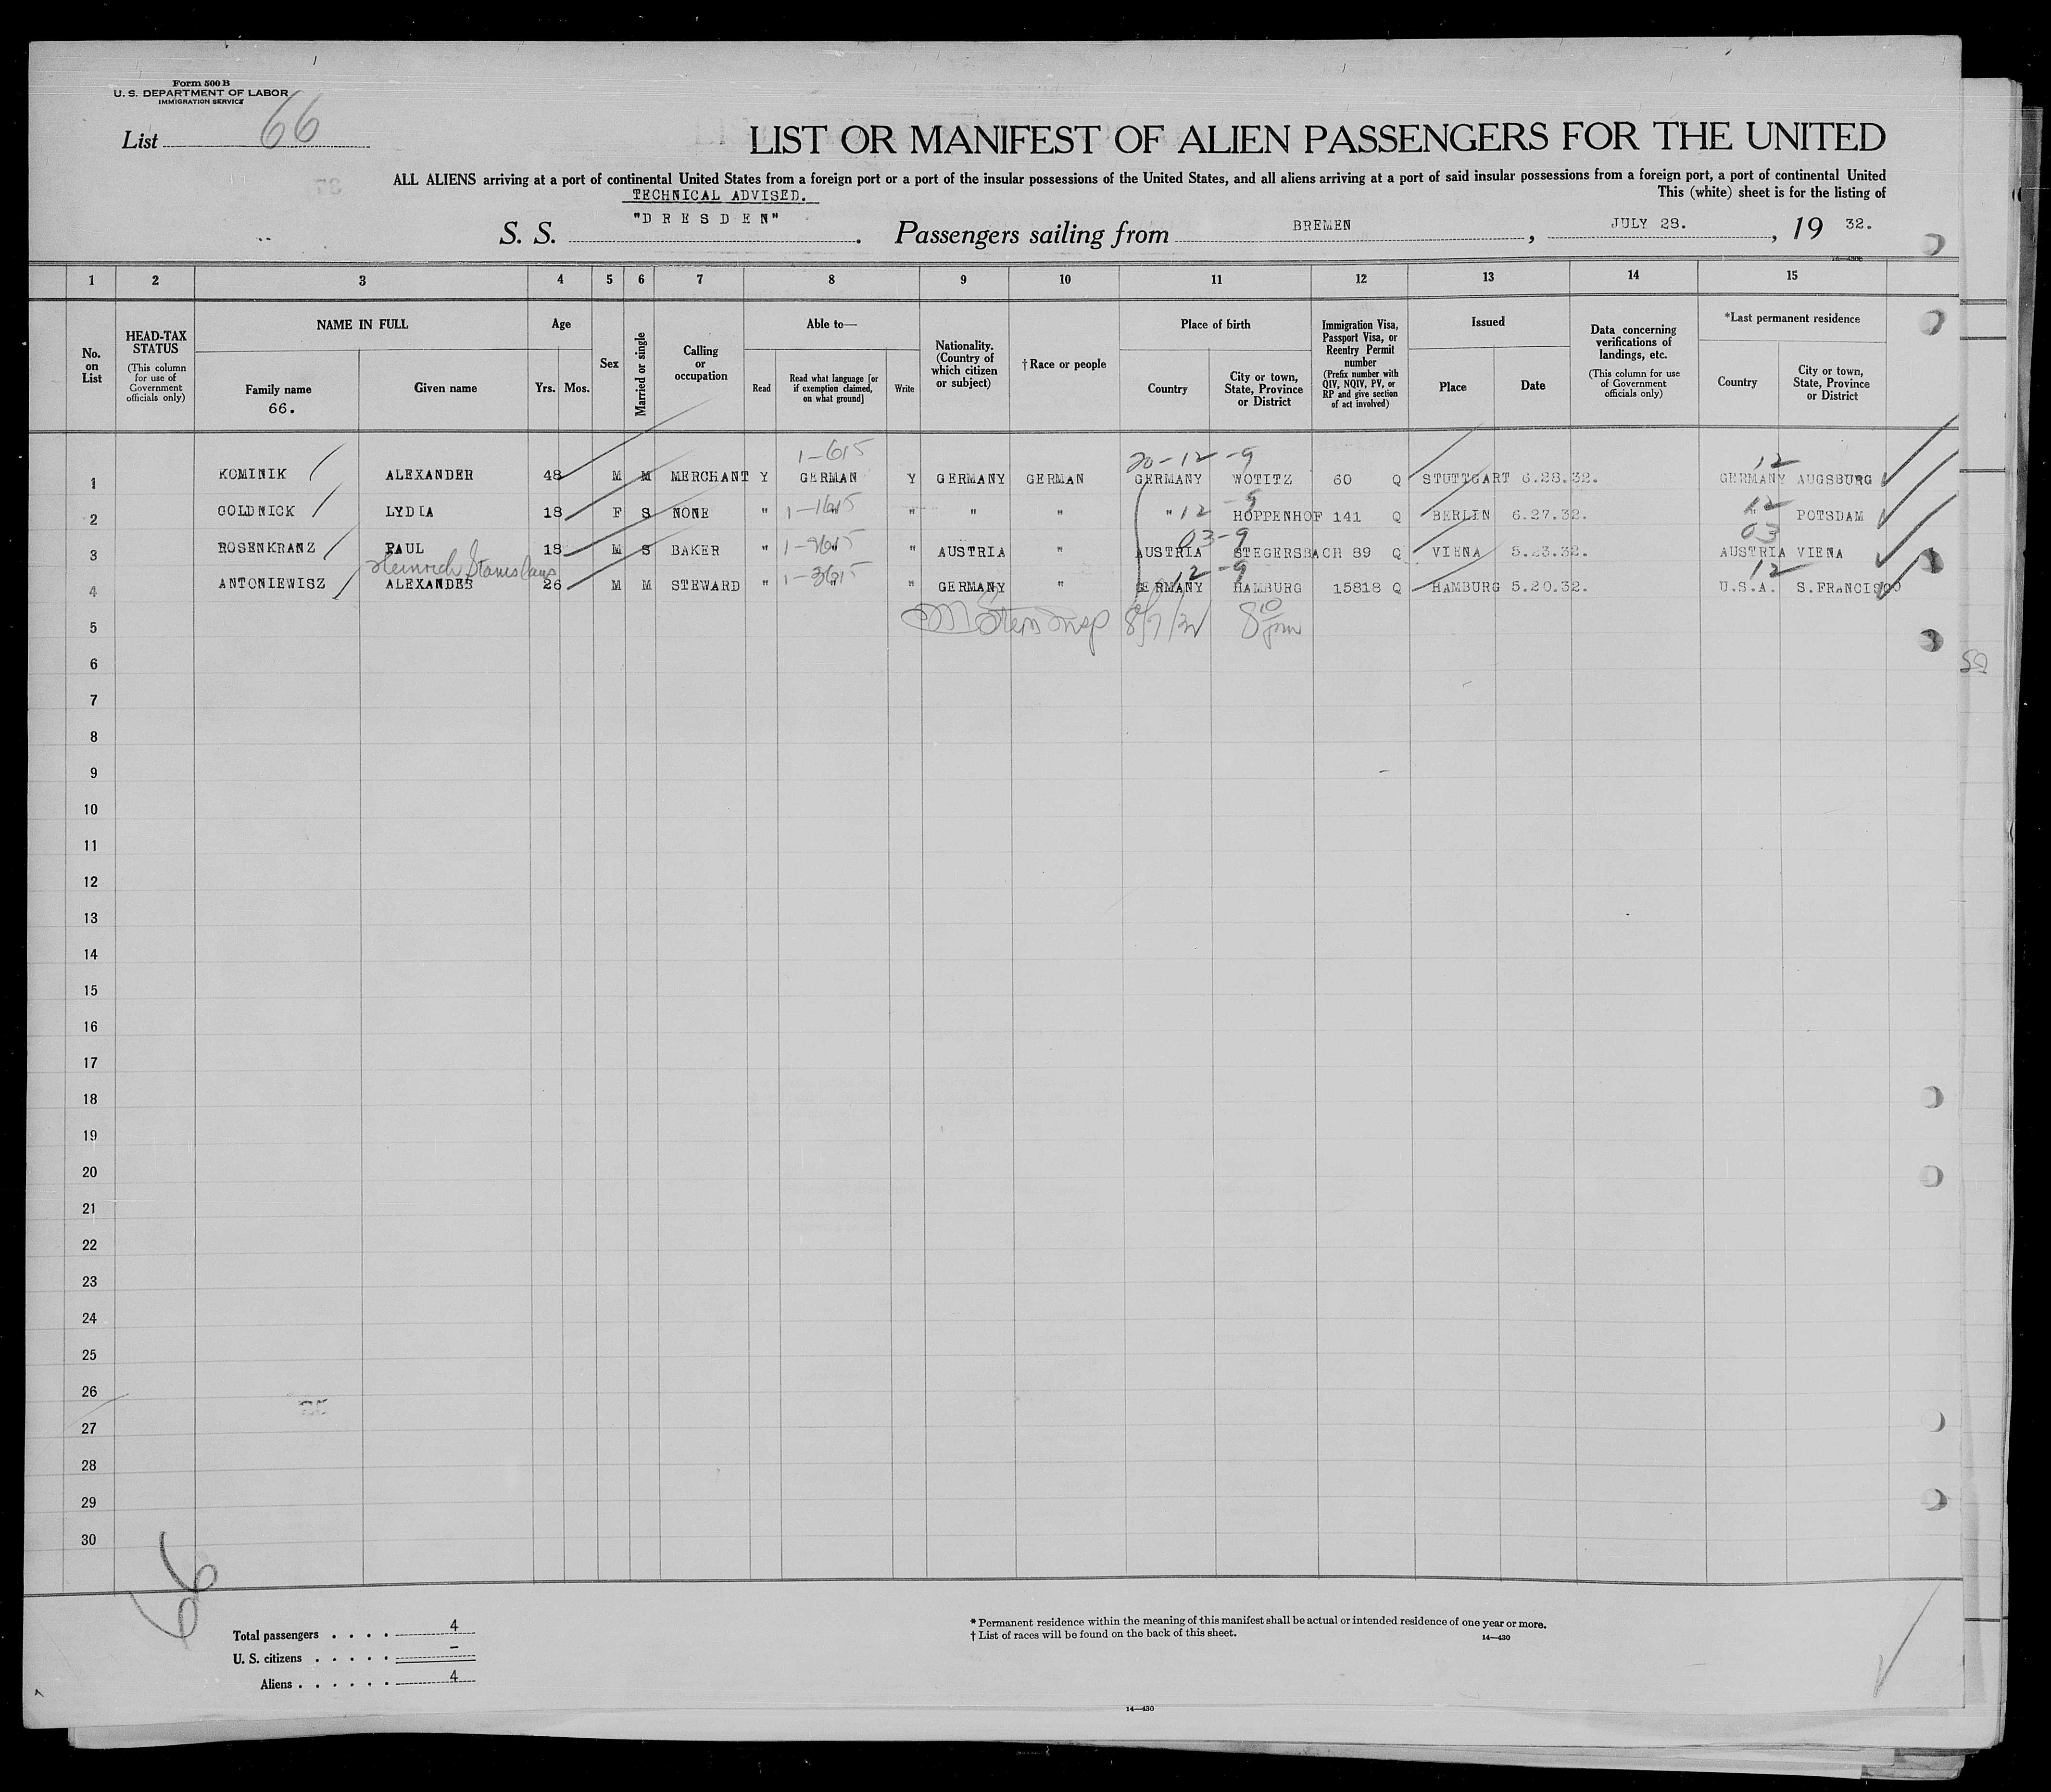 Form 500 B
U. S. DEPARTMENT OF LABOR
IMMIGRATION SERVICE
List 66
LIST OR MANIFEST OF ALIEN PASSENGERS FOR THE UNITED
ALL ALIENS arriving at a port of continental United States from a foreign port or a port of the insular possessions of the United States, and all aliens arriving at a port of said insular possessions from a foreign port, a port of continental United
TECHNICAL ADVISED. This (white) sheet is for the listing of
S. S. "D R E S D E N". Passengers sailing from BREMEN, JULY 28., 19 32.
1 2 3 4 5 6 7 8 9 10 11 12 13 14 15
No. on List
HEAD-TAX STATUS
(This column for use of Government officials only)
NAME IN FULL
Family name
66.
Given name
Age
Yrs. Mos.
Sex
Married or single
Calling or occupation
Able to—
Read
Read what language [or if exemption claimed, on what ground]
Write
Nationality. (Country of which citizen or subject)
† Race or people
Place of birth
Country
City or town, State, Province or District
Immigration Visa, Passport Visa, or Reentry Permit number
(Prefix number with QIV, NQIV, PV, or RP and give section of act involved)
Issued
Place
Date
Data concerning verifications of landings, etc.
(This column for use of Government officials only)
*Last permanent residence
Country
City or town, State, Province or District
1-615 20-12-9 12
1 KOMINIK ALEXANDER 48 M M MERCHANT Y GERMAN Y GERMANY GERMAN GERMANY WOTITZ 60 Q STUTTGART 6.28.32. GERMANY AUGSBURG
2 GOLDNICK LYDIA 18 F S NONE " " " " " " 12 -9 HOPPENHOF 141 Q BERLIN 6.27.32. " 12 POTSDAM
03-9 03
3 ROSENKRANZ PAUL 18 M S BAKER " " " AUSTRIA " AUSTRIA STEGERSBACH 89 Q VIENA 5.23.32. AUSTRIA VIENA
Heinrich Stanislaus 12-9 12
4 ANTONIEWISZ ALEXANDER 26 M M STEWARD " " " GERMANY " GERMANY HAMBURG 15818 Q HAMBURG 5.20.32. U.S.A. S.FRANCISCO
5
6
7
8
9
10
11
12
13
14
15
16
17
18
19
20
21
22
23
24
25
26
27
28
29
30
66
Total passengers . . . . 4
U. S. citizens . . . . . –
Aliens . . . . . . 4
* Permanent residence within the meaning of this manifest shall be actual or intended residence of one year or more.
† List of races will be found on the back of this sheet. 14—430
14—430